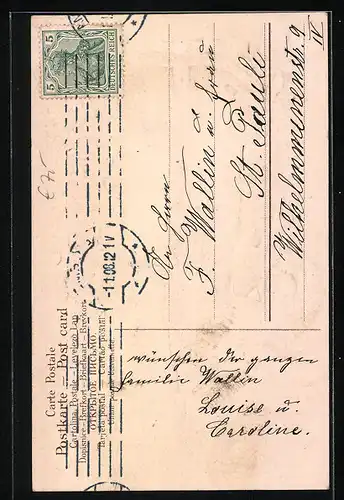 Carte Postale
Postkarte – Post card
Cartolina Postale – Levelező Lap
Dopisnice – Brefkort – Briefkaart – Brevkort
ОТКРЫТОЕ ПИСЬМО
Tarjeta postal – Cartão postal
5 5
DEUTSCHES REICH
-1.1.08.12-1V
An Herrn
F. Wallin u. Frau
St. Pauli
Wilhelminenstr. 9
IV
wünschen der ganzen
Familie Wallin
Louise u.
Caroline.